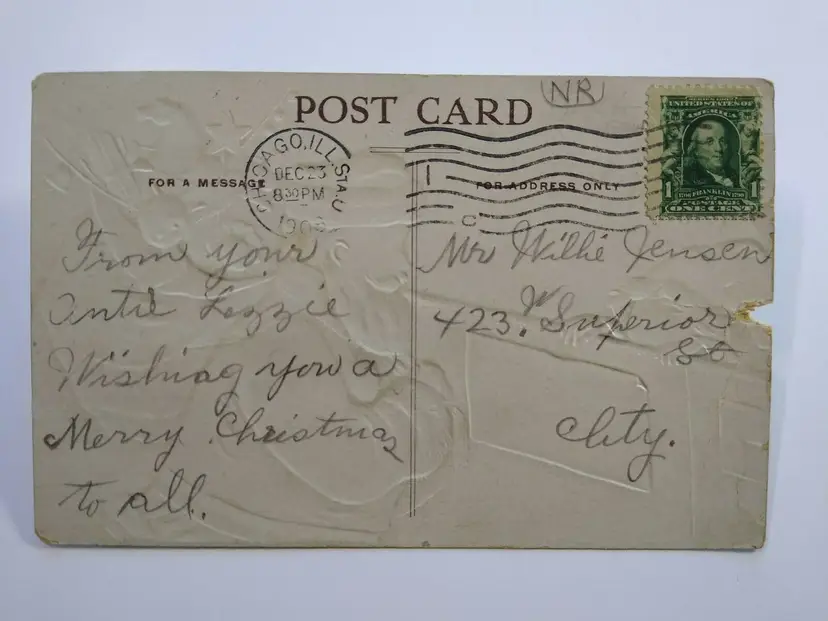 POST CARD
NR
UNITED STATES OF
AMERICA
1 FRANKLIN 1
POSTAGE
ONE CENT
CHICAGO, ILL. STA. C
DEC 23
8 30 PM
1
C
FOR A MESSAGE
FOR ADDRESS ONLY
From your
Antie Lizzie
Wishing you a
Merry Christmas
to all.
Mr Willie Jensen
423. W Superior
St
City.